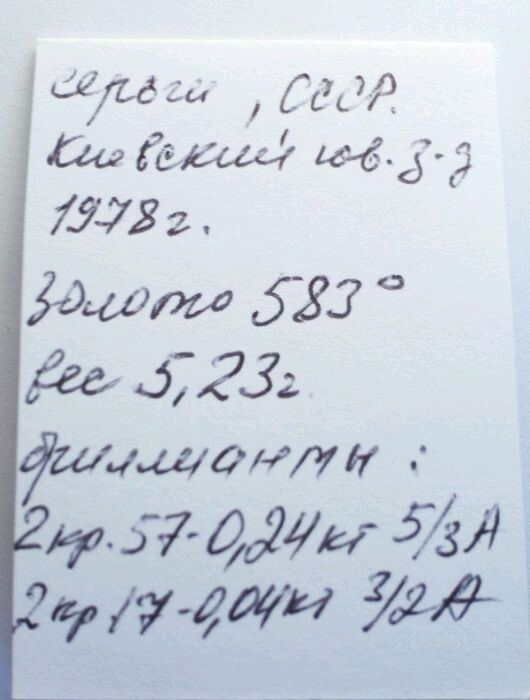 серьги, СССР.
Киевский юв. з-д
1978г.
Золото 583°
вес 5,23г.
бриллианты:
2кр.57-0,24кт 5/3А
2кр17-0,04кт 3/2А